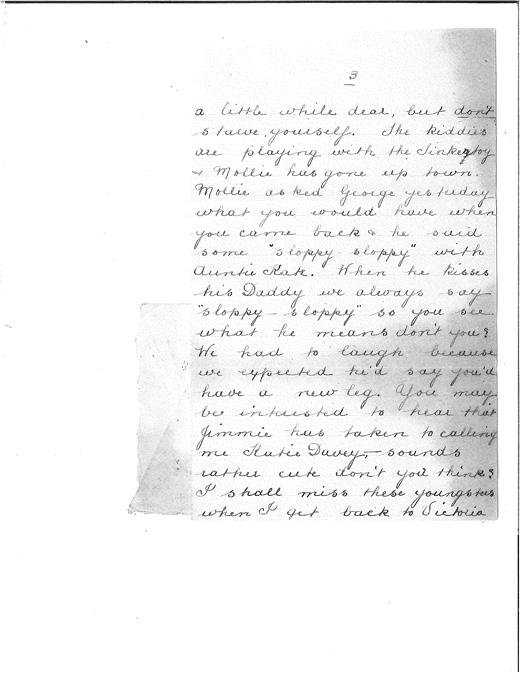 3
a little while dear, but don't
starve yourself. The kiddies
are playing with the Tinkertoy
& Mollie has gone up town.
Mollie asked George yesterday
what you would have when
you came back & he said
some "sloppy-sloppy" with
Auntie Kate. When he kisses
his Daddy we always say
"sloppy-sloppy" so you see
what he means don't you?
We had to laugh because
we expected he'd say you'd
have a new leg. You may
be interested to hear that
Jimmie has taken to calling
me Katie Davey,- sounds
rather cute don't you think?
I shall miss these youngsters
when I get back to Victoria